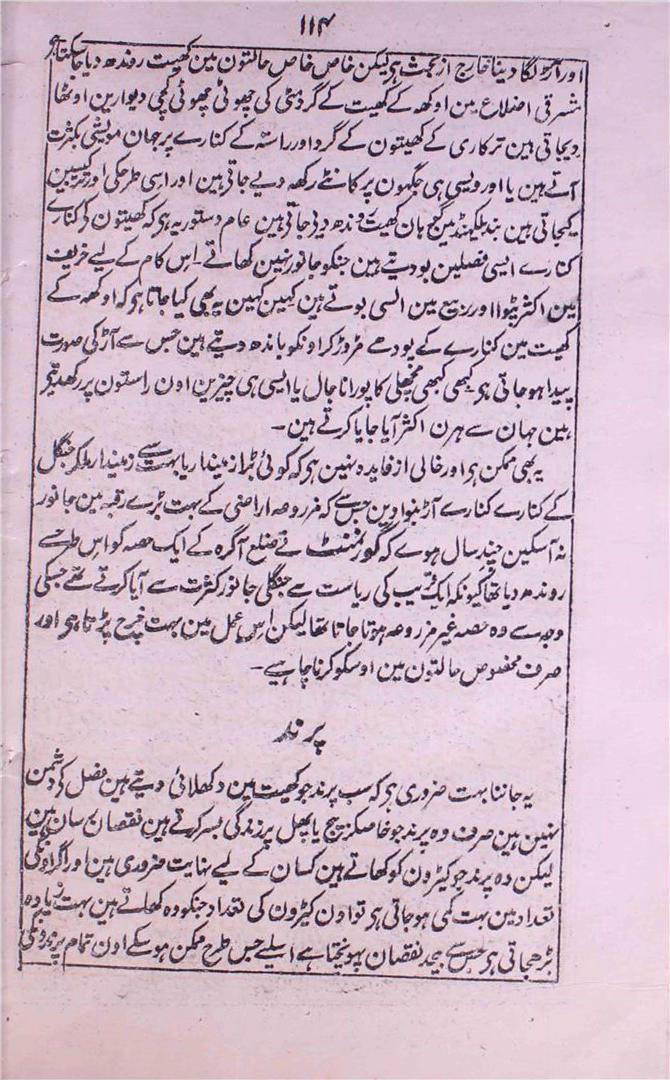 ۱۱۴
اور آڑ لگا دینا خارج از بحث ہی لیکن خاص خاص حالتون مین کھیت روندھ دیا جا سکتا ہی
شرقی اضلاع مین اوکھہ کے کھیت کے گرد مٹی کی چھوٹی چھوٹی کچی دیوارین اوٹھا
دیجاتی ہین ترکاری کے کھیتون کے گرد اور راستہ کے کنارے پر جہان مویشی بکثرت
آتے ہین یا اور ویسی ہی جگہون پر کانٹے رکھہ دیے جاتی ہین اور اسی طرحکی اور ترکیبین
کیجاتی ہین بندیلکھنڈ مین کہان کھیت روندھ دیئی جاتی ہین عام دستور یہ ہی کہ کھیتون کی کنارے
کنارے ایسی فصلین بو دیتے ہین جنکو جانور نہین کھاتے اس کام کے لیے خریف
مین اکثر پٹوا اور ربیع مین السی بوتے ہین کہین کہین یہ بھی کیا جاتا ہو کہ اوکھہ کے
کھیت مین کنارے کے پودھے مروڑ کر اونکو باندھ دیتے ہین جس سے آڑ کی صورت
پیدا ہو جاتی ہی کبھی کبھی مچھلی کا پورانا جال یا ایسی ہی چیزین اون راستون پر رکھدیتے
ہین جہان سے ہرن اکثر آیا جایا کرتے ہین۔
یہ بھی ممکن ہی اور خالی از فایدہ نہین ہی کہ کوئی بڑا زمیندار یا بہت سے زمیندار ملکر جنگل
کے کنارے کنارے آڑ بنوا دین جس سے کہ مزروعہ اراضی کے بہت بڑے رقبہ مین جانور
نہ آسکین چند سال ہوے کہ گورنمنٹ نے ضلع آگرہ کے ایک حصہ کو اس طرح سے
روندھ دیا تھا کیونکہ ایک قریب کی ریاست سے جنگلی جانور کثرت سے آیا کرتے تھے جسکی
وجہ سے وہ حصہ غیر مزروعہ ہوتا جاتا تھا لیکن اس عمل مین بہت خرچ پڑتا ہی اور
صرف مخصوص حالتون مین اوسکو کرنا چاہیے۔
پرند
یہ جاننا بہت ضروری ہی کہ سب پرند جو کھیت مین دکھلائی دیتے ہین فصل کو دشمن
نہین ہین صرف وہ پرند جو خاصکر بیج یا پھل پر زندگی بسر کرتے ہین نقصان رسان ہین
لیکن وہ پرند جو کیڑون کو کھاتے ہین کسان کے لیے نہایت ضروری ہین اور اگر اونکی
تعداد مین بہت کمی ہو جاتی ہی تو اون کیڑون کی تعداد جنکو وہ کھاتے ہین بہت زیادہ
بڑھجاتی ہی جس سے بیحد نقصان پہونچتا ہے اسلیے جس طرح ممکن ہو سکے اون تمام پرندونکی